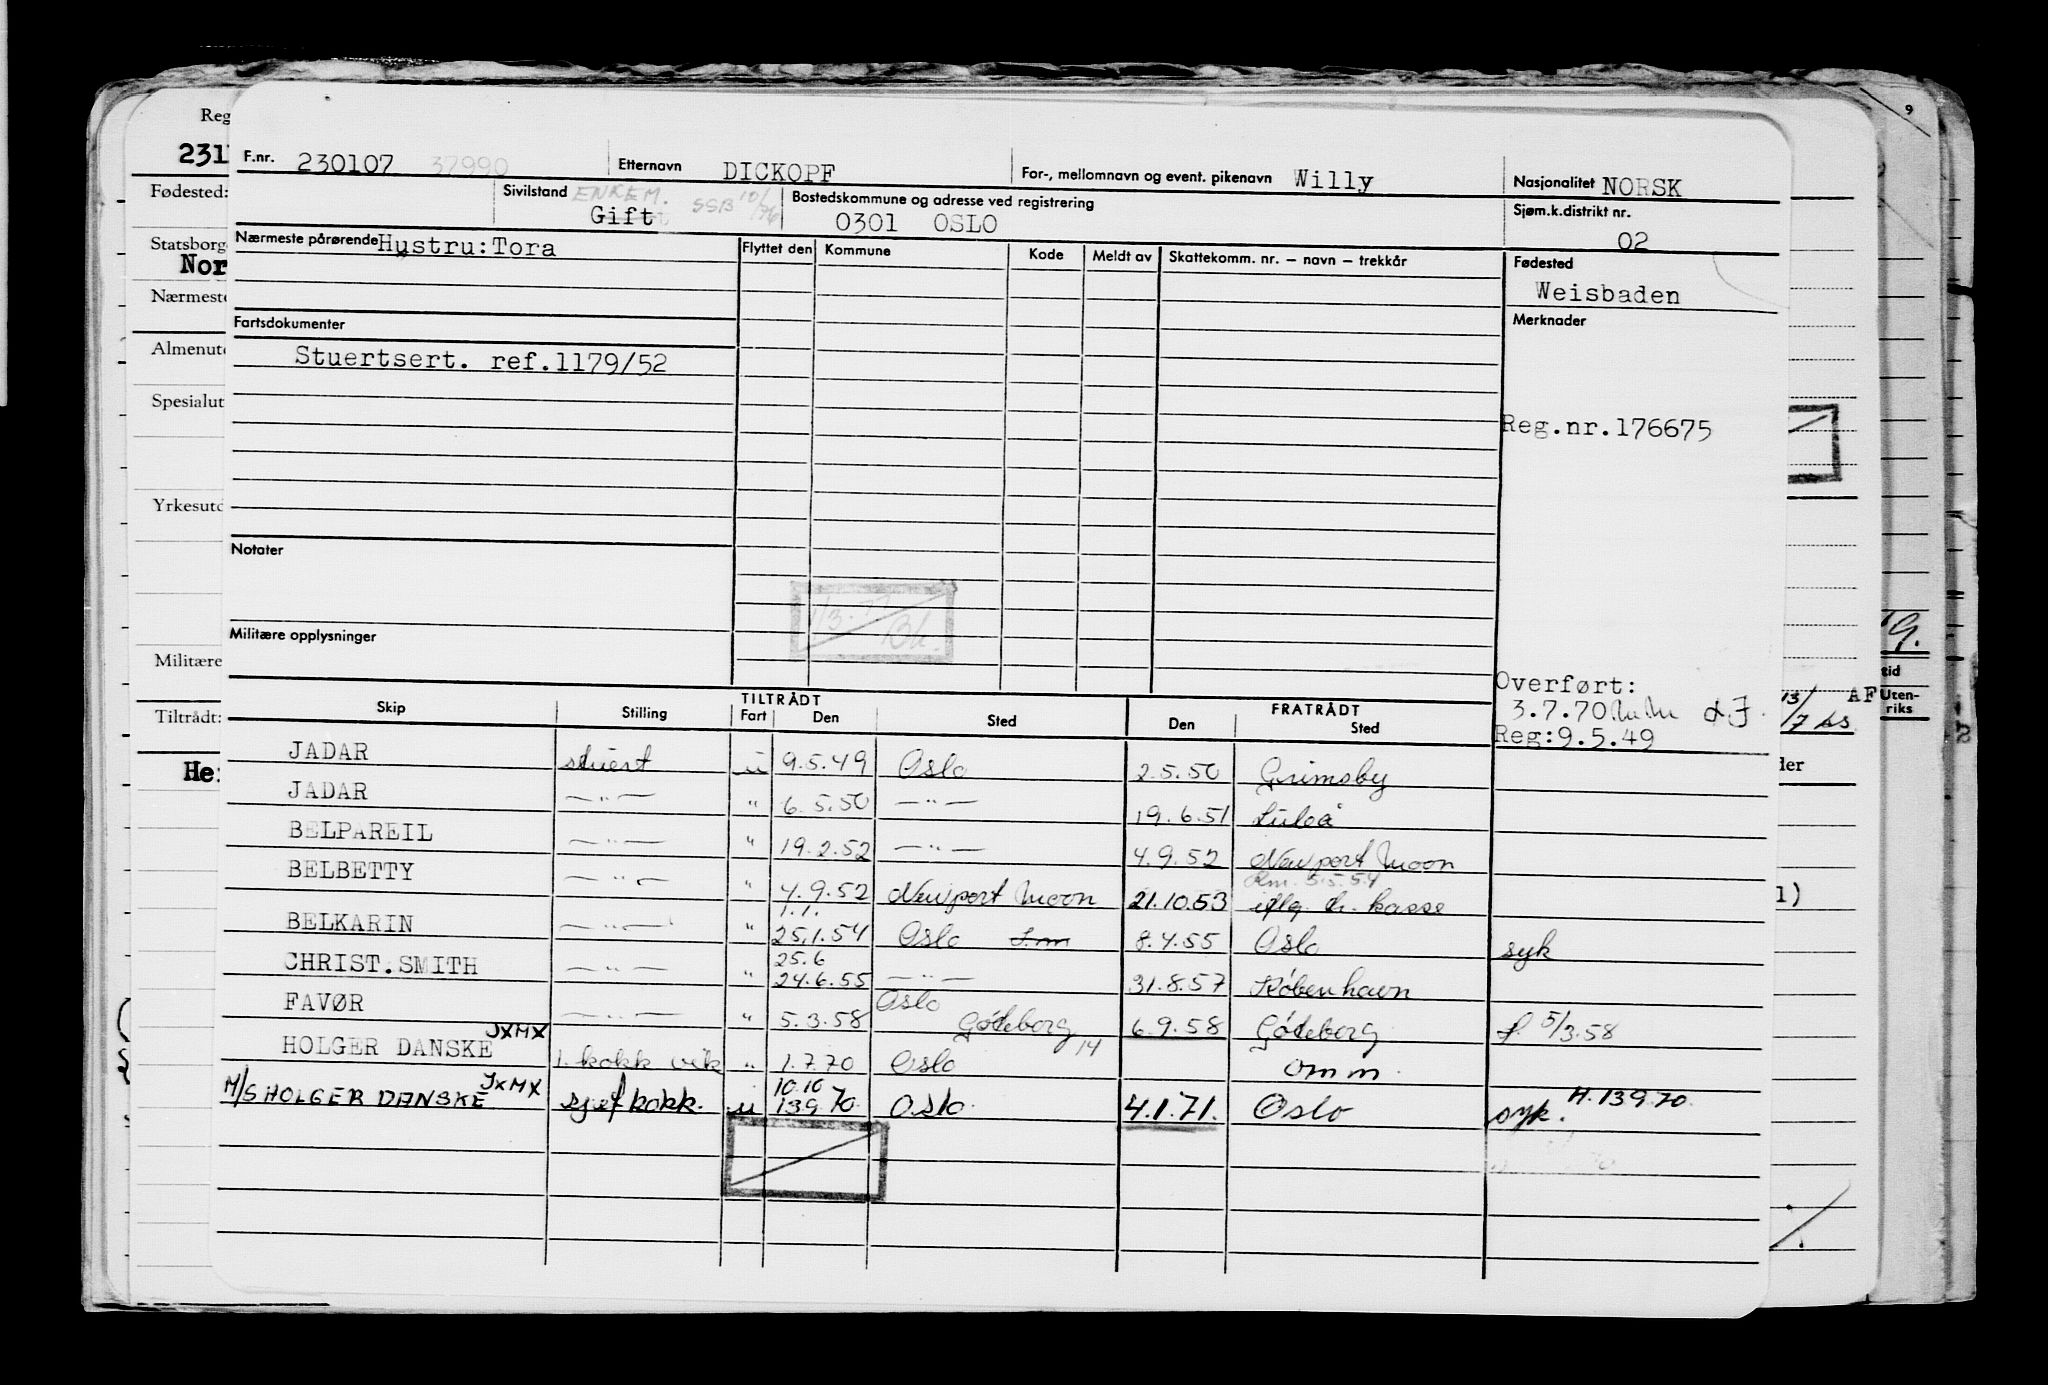 F.nr. 230107 37990 Etternavn DICKOPF For-, mellomnavn og event. pikenavn Willy Nasjonalitet NORSK
Sivilstand ENKEM. Gift SSB 10/76 Bostedskommune og adresse ved registrering 0301 OSLO Sjøm.k.distrikt nr. 02
Nærmeste pårørende Hustru: Tora Flyttet den Kommune Kode Meldt av Skattekomm. nr. – navn – trekkår Fødested
Weisbaden
Fartsdokumenter Merknader
Stuertsert. ref.1179/52
Reg.nr.176675
Notater
Militære opplysninger
Overført:
3.7.70
Reg:9.5.49
Skip Stilling TILTRÅDT Fart Den Sted FRATRÅDT Den Sted
JADAR stuert u 9.5.49 Oslo 2.5.50 Grimsby
JADAR — " — " 6.5.50 — " — 19.6.51 Luleå
BELPAREIL — " — " 19.2.52 — " — 4.9.52 Newport Moon
BELBETTY — " — " 4.9.52 Newport Moon 21.10.53
BELKARIN — " — " 1.1. 25.1.54 Oslo 8.4.55 Oslo syk
CHRIST.SMITH — " — " 25.6 24.6.55 — " — 31.8.57 København
FAVØR — " — " 5.3.58 Oslo Göteborg 6.9.58 Göteborg f. 5/3.58
HOLGER DANSKE JXMX 1. kokk vik " 1.7.70 Oslo 14 omm.
M/S HOLGER DANSKE JXMX sjefkokk. u 10.10 13.9.70 Oslo. 4.1.71. Oslo syk. H.13.9.70.
Reg
231
Fødested:
Statsborge
Nor
Nærmeste
Almenut
Spesialut
Yrkesutd
Militære
Tiltrådt:
He
9
19.
tid
Uten-
riks
AF
13/7
der
1)